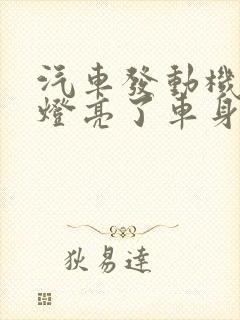 汽車發動機
燈亮了車身
狄易達